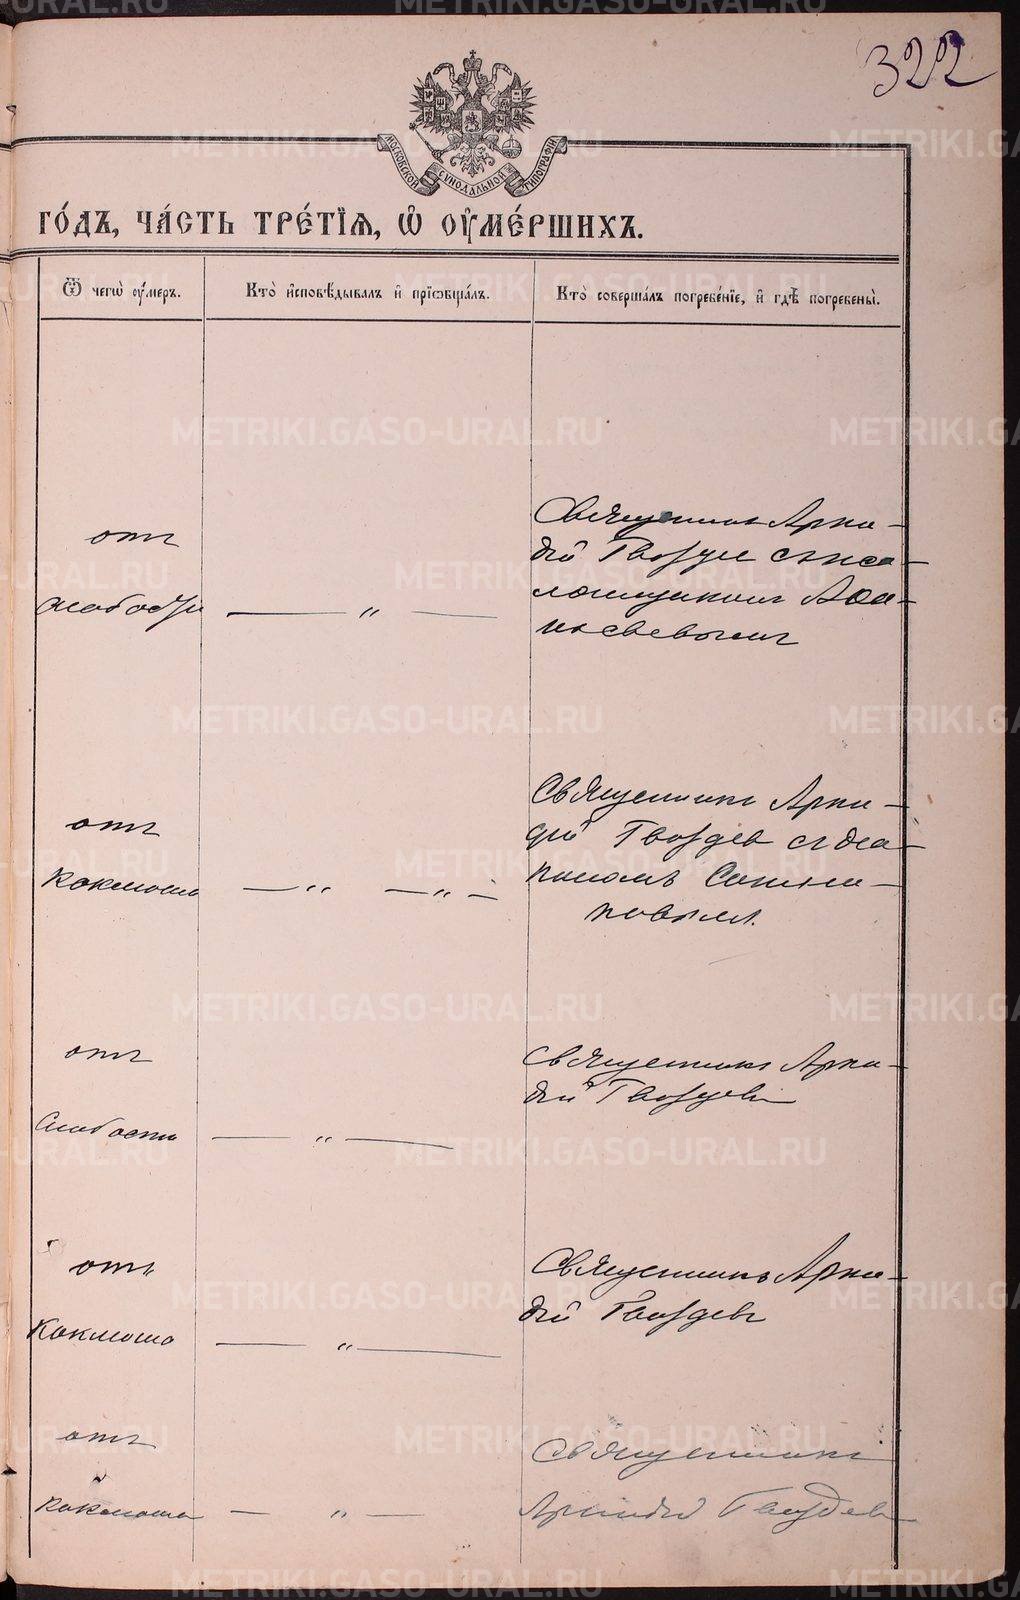 322
МОСКОВСКОЙ СѴНОДАЛЬНОЙ ТИПОГРАФІИ
ГО́ДЪ, ЧА́СТЬ ТРЕ́ТІѦ, Ѡ҆ ОУ҆МЕ́РШИХЪ.
Ѿ чегѡ̀ оу҆́меръ.
Кто̀ и҆сповѣ́дывалъ и҆ прїѡбща́лъ.
Кто̀ соверша́лъ погребе́нїе, и҆ гдѣ̀ погребены̀.
отъ
слабости
— „ —
Священникъ Арка-
дій Гвоздев съ пса-
ломщикомъ Афа-
насьевымъ
отъ
Коклюша
— „ — „ —
Священникъ Арка-
дій Гвоздев съ диа-
кономъ
отъ
Слабости
— „ —
Священникъ Арка-
дій Гвоздевъ
отъ
Коклюша
— „ —
Священникъ Арка-
дій Гвоздевъ
отъ
Коклюша
— „ —
Священникъ
Аркадій Гвоздев
METRIKI.GASO-URAL.RU